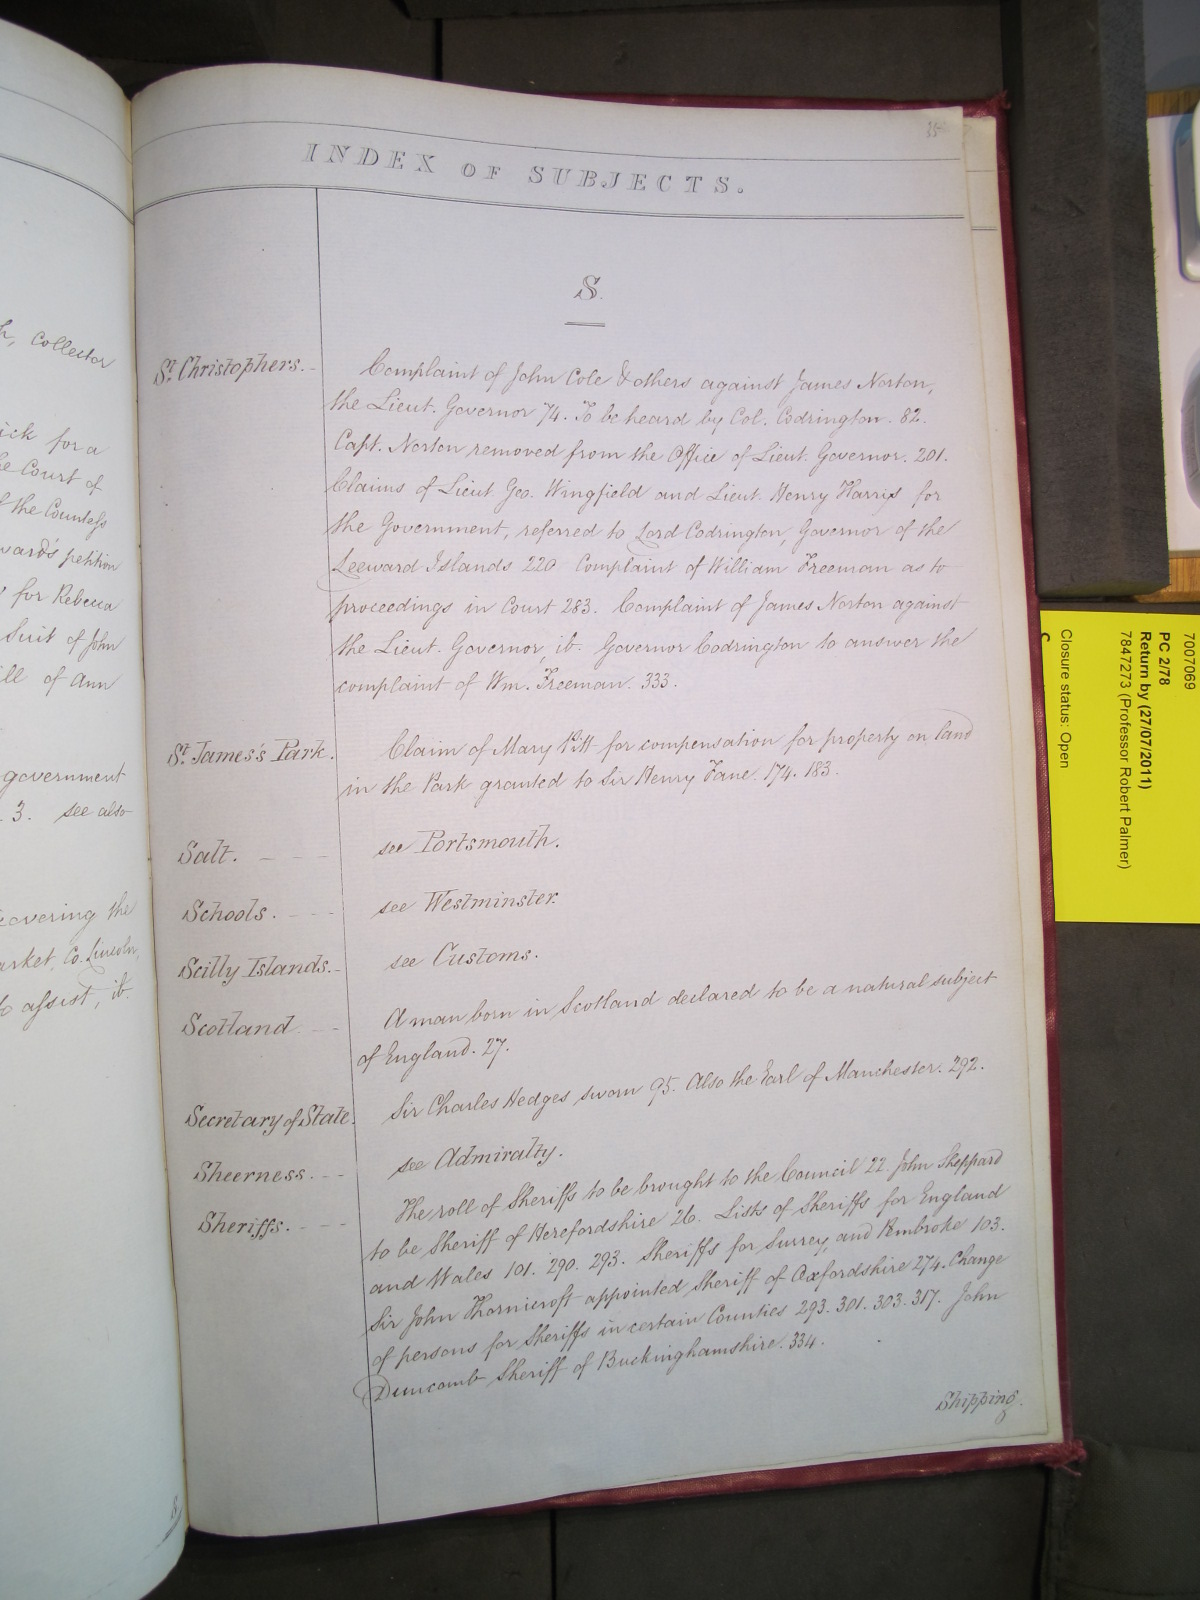 h, Collector
ick for a
he Court of
f the Countess
ward's petition
for Rebecca
Suit of John
ill of Ann
government
3. see also
covering the
arket, Co. Lincoln,
to assist, ib.
S
35
INDEX OF SUBJECTS.
S.
St. Christophers. -
Complaint of John Cole & others against James Norton,
the Lieut. Governor 74. To be heard by Col. Codrington. 82.
Capt. Norton removed from the Office of Lieut. Governor. 201.
Claims of Lieut. Geo. Wingfield and Lieut. Henry Harris for
the Government, referred to Lord Codrington, Governor of the
Leeward Islands 220 Complaint of William Freeman as to
proceedings in Court 283. Complaint of James Norton against
the Lieut. Governor, ib. Governor Codrington to answer the
complaint of Wm. Freeman. 333.
St. James's Park.
Claim of Mary Pitt for compensation for property on land
in the Park granted to Sir Henry Fane. 174. 183.
Salt. - - - see Portsmouth.
Schools. - - - see Westminster.
Scilly Islands. - see Customs.
Scotland - - A man born in Scotland declared to be a natural subject
of England. 27.
Secretary of State. Sir Charles Hedges sworn 95. Also the Earl of Manchester. 292.
Sheerness. - - see Admiralty.
Sheriffs. - - - The roll of Sheriffs to be brought to the Council 22. John Sheppard
to be Sheriff of Herefordshire 26. Lists of Sheriffs for England
and Wales 101. 290. 293. Sheriffs for Surrey, and Pembroke 103.
Sir John Thornicroft appointed Sheriff of Oxfordshire 274. Change
of persons for Sheriffs in certain Counties 293. 301. 303. 317. John
Duncomb Sheriff of Buckinghamshire. 334.
Shipping.
7007069
PC 2/78
Return by (27/07/2011)
7847273 (Professor Robert Palmer)
Closure status: Open